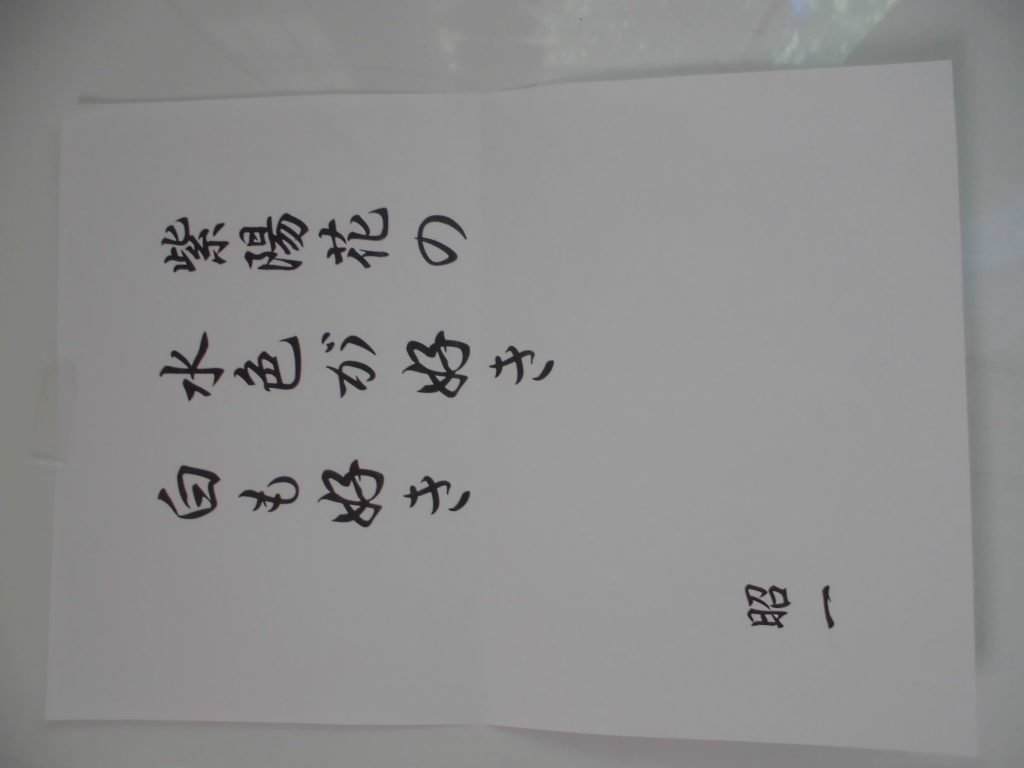 紫陽花の
水色が好き
白も好き
昭一